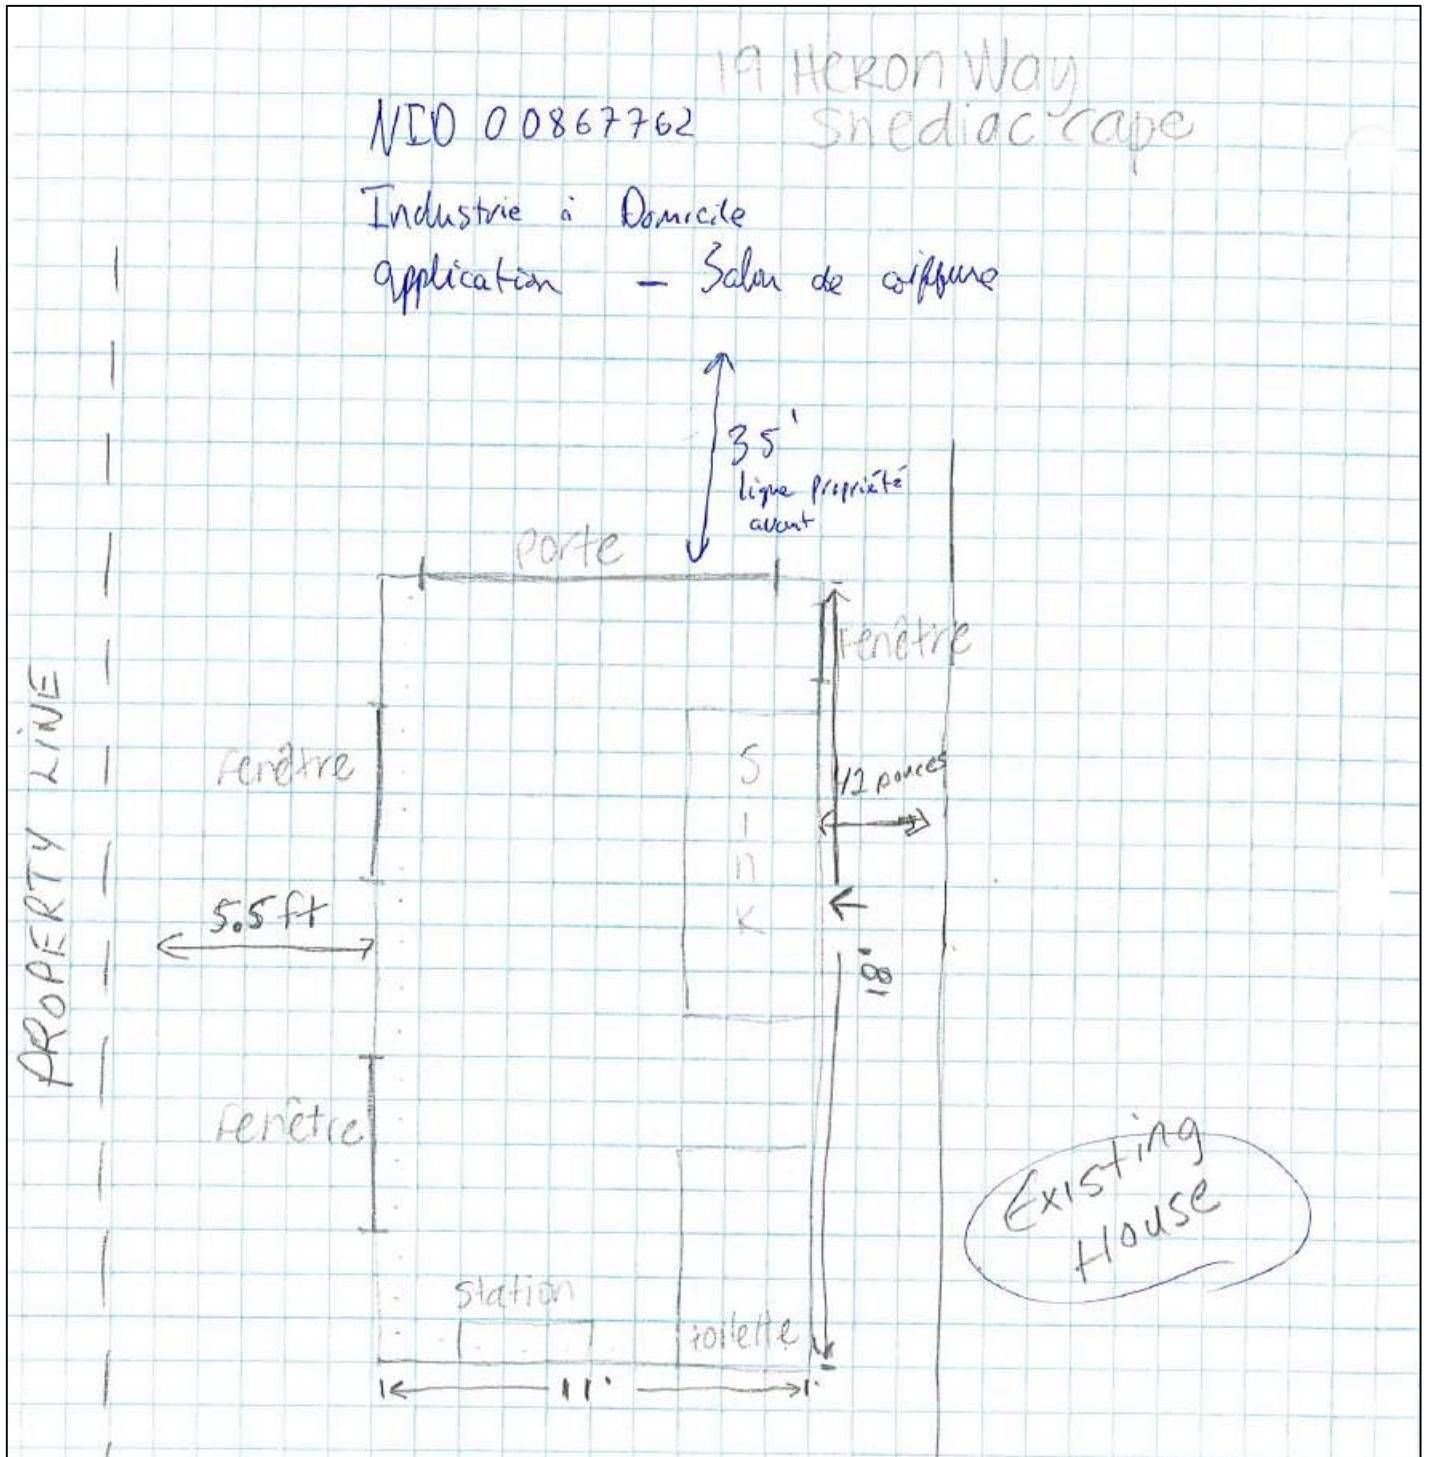 19 Heron Way
Shediac Cape
NID 00867762
Industrie à Domicile
application — Salon de coiffure
35'
ligne propriété
avant
porte
Fenêtre
PROPERTY LINE
Fenêtre
SINK
42 pouces
5.5 ft
18'
Fenêtre
Existing
House
Station
toilette
11'